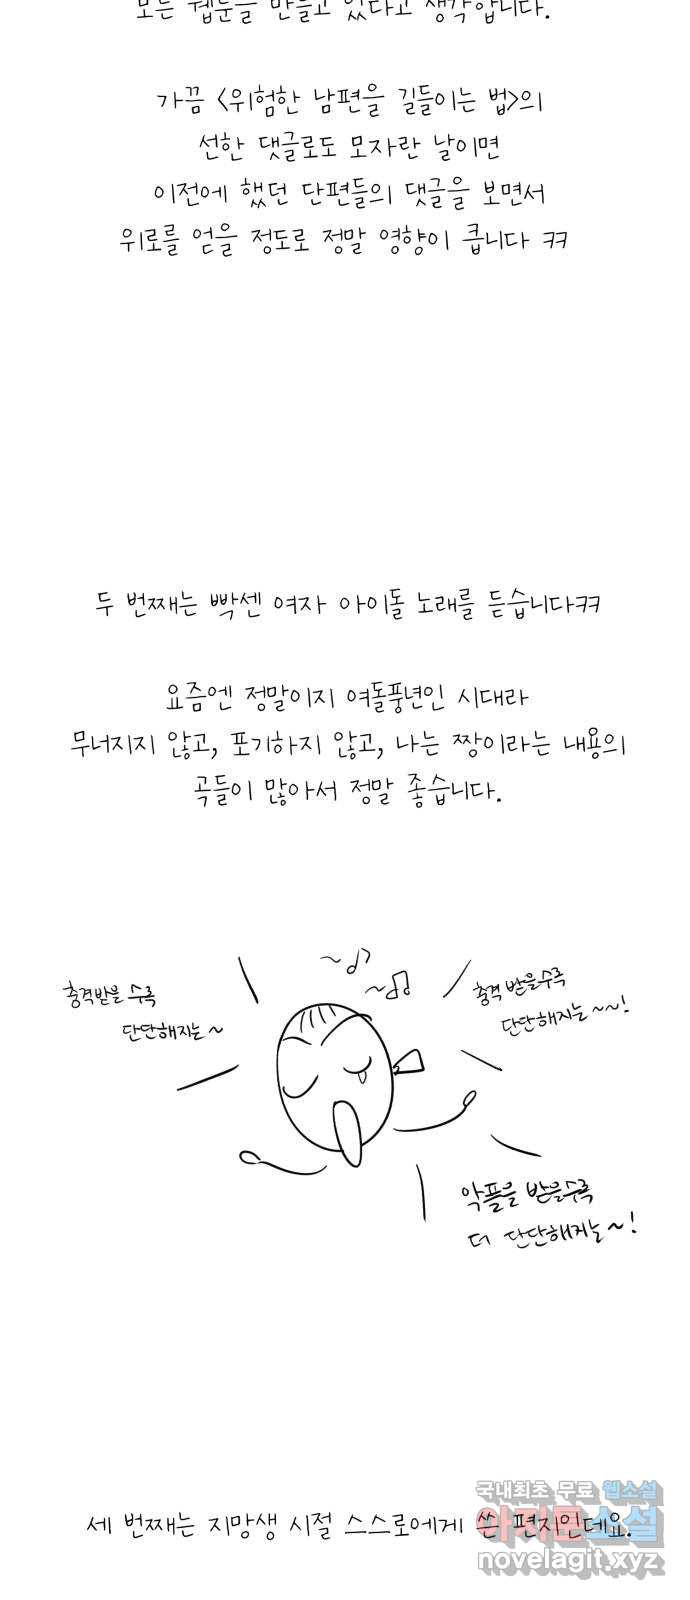 모든 웹툰을 만들고 있다고 생각합니다.
가끔 <위험한 남편을 길들이는 법>의
선한 댓글로도 모자란 날이면
이전에 했던 단편들의 댓글을 보면서
위로를 얻을 정도로 정말 영향이 큽니다 ㅋㅋ
두 번째는 빡센 여자 아이돌 노래를 듣습니다ㅋㅋ
요즘엔 정말이지 여돌풍년인 시대라
무너지지 않고, 포기하지 않고, 나는 짱이라는 내용의
곡들이 많아서 정말 좋습니다.
충격받을 수록
단단해지는~
충격 받을수록
단단해지는~~!
악플을 받을수록
더 단단해지는~!
세 번째는 지망생 시절 스스로에게 쓴 편지인데요.
국내최초 무료 웹소설
아지툰소설
novelagit.xyz